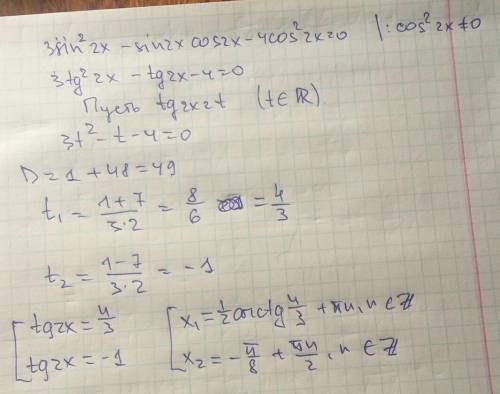 3sin² 2x - sin2x cos2x - 4cos² 2x = 0 |: cos² 2x ≠ 0
3tg² 2x - tg2x - 4 = 0
Пусть tg2x = t (t ∈ ℝ)
3t² - t - 4 = 0
D = 1 + 48 = 49
t₁ = (1+7)/(3·2) = 8/6 = 4/3
t₂ = (1-7)/(3·2) = -1
[ tg2x = 4/3 [ x₁ = 1/2 arctg 4/3 + πn, n ∈ Z
tg2x = -1 x₂ = - π/8 + πn/2, n ∈ Z